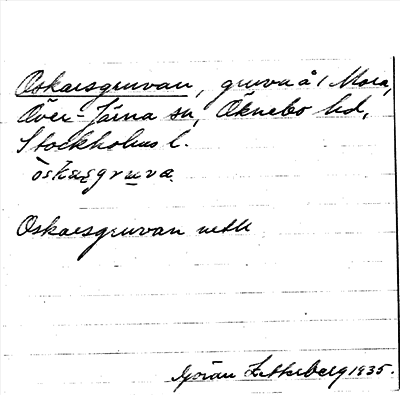 Oskarsgruvan, gruva å 1 Mora,
Över-Järna sn, Öknebo hd,
Stockholms l.
Oskarsgruvan
Göran Zetterberg 1935.